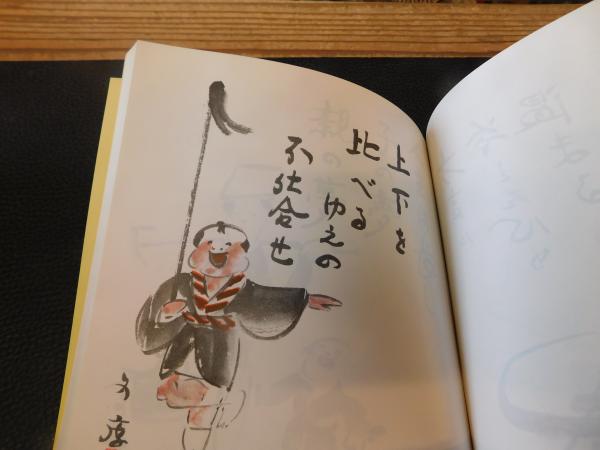 上下を
比べる
ゆえの
不仕合せ